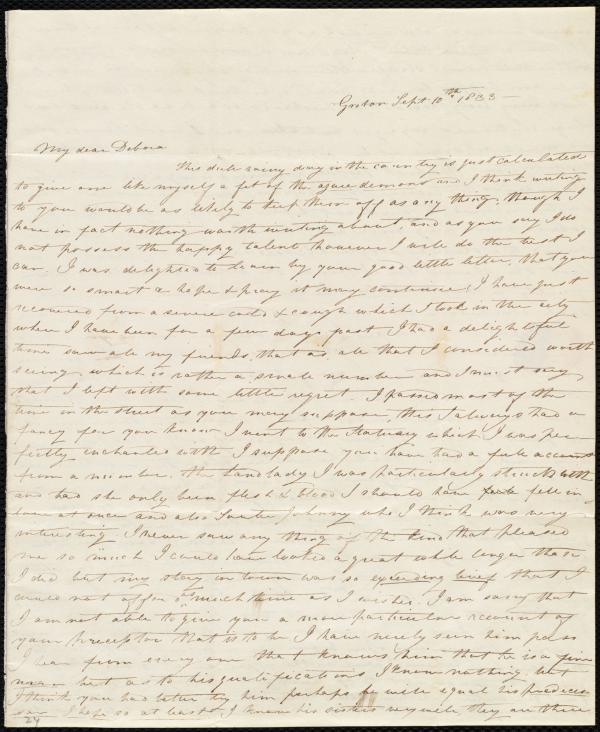 Groton Sept 10th 1833 —
My dear Debora
This dull rainy day in the country is just calculated
to give one like myself a fit of the ague demons and I think writing
to you would be as likely to keep them off as any thing, though I
have in fact nothing worth writing about, and as you say I do
not possess the happy talent however I will do the best I
can. I was delighted to learn by your good little letter, that you
were so smart & hope & pray it may continue. I have just
recovered from a severe cold & cough which I took in the city
where I have been for a few days past I had a delightful
time saw all my friends, that is all that I considered worth
seeing, which is rather a small number and I must say
that I left with some little regret. I passed most of the
time in the street as you may suppose, this I always had a
fancy for you know I went to the Statuary which I was per
fectly enchanted with I suppose you have had a full account
from a number. the Landlady I was particularly struck with
and had she only been flesh & blood I should have fell in
love at once and also Souter Johnny who I think was very
interesting. I never saw any thing of the kind that pleased
me so much I could have looked a great while longer than
I did but my stay in town was so exceeding brief that I
could not afford as much time as I wished. I am sorry that
I am not able to give you a more particular account of
your Preceptor that is to be I have merely seen him pass
I hear from every one that knows him that he is a fine
man but as to his qualifications I know nothing, but
I think you had better try him perhaps he will equal his predeces
sor I hope so at least I know his sisters very well, they are three
24